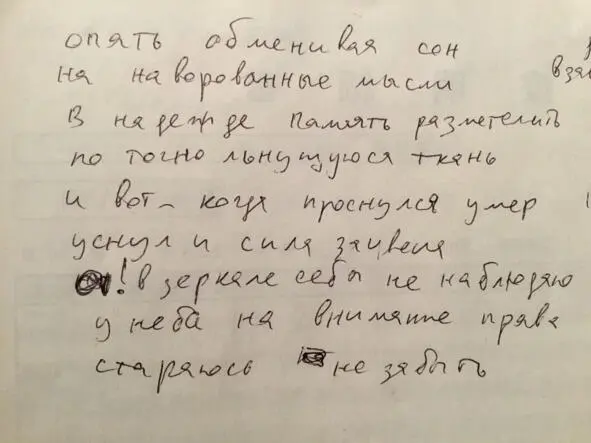 опять обменивая сон
на наворованные мысли
взял
в надежде память разметелить
по точно льнущуюся ткань
и вот - когда проснулся умер
уснул и сила зацвела
! в зеркале себы не наблюдяю
у неба на внимание права
стараюсь не забыть